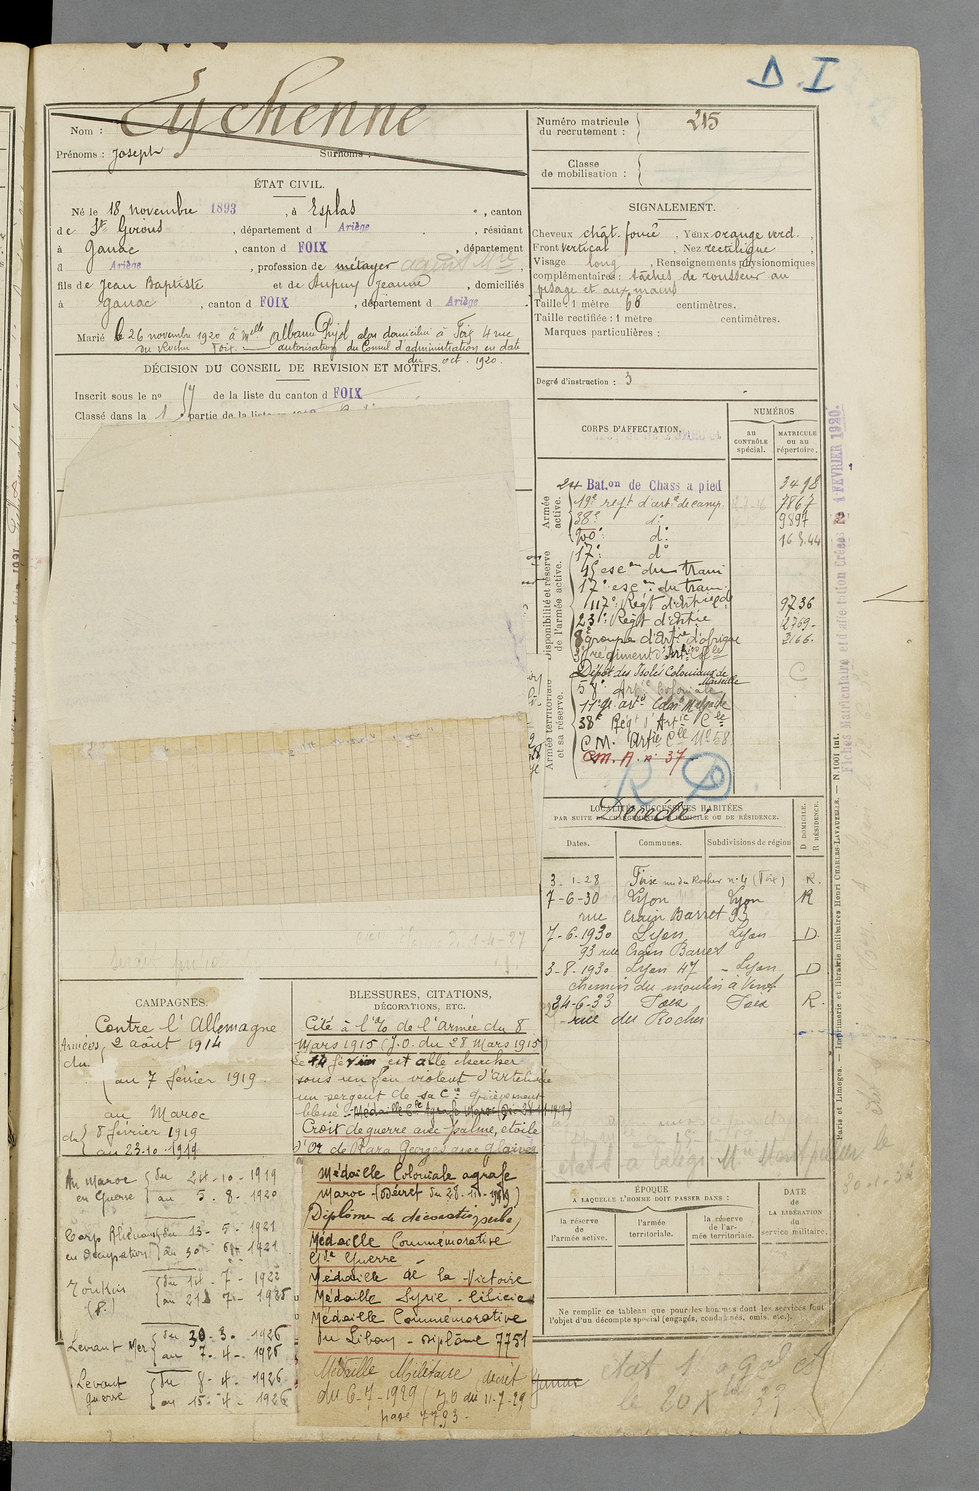 D. I
Nom : Eychenne
Prénoms : Joseph Surnoms :
Numéro matricule du recrutement : 215
Classe de mobilisation :
ÉTAT CIVIL.
Né le 18 novembre 1893, à Esplas, canton
de St Girons, département d Ariège, résidant
à Ganac, canton d FOIX, département
d Ariège, profession de métayer
fils de Jean Baptiste et de Dupuy Jeanne, domiciliés
à Ganac, canton d FOIX, département d Ariège
Marié le 26 novembre 1920 à Melle Albanie Pujol alors domiciliée à Foix 4 rue
du Rocher Foix. autorisation du Conseil d'administration en date
du oct. 1920.
DÉCISION DU CONSEIL DE REVISION ET MOTIFS.
Inscrit sous le no 17 de la liste du canton d FOIX
Classé dans la 1 partie de la liste en
SIGNALEMENT.
Cheveux chât. foncé, Yeux orange verd.
Front vertical, Nez rectiligne
Visage long, Renseignements physionomiques
complémentaires : tâches de rousseur au
visage et aux mains
Taille : 1 mètre 68 centimètres.
Taille rectifiée : 1 mètre centimètres.
Marques particulières :
Degré d'instruction : 3
CORPS D'AFFECTATION.
NUMÉROS
au CONTRÔLE spécial.
MATRICULE ou au répertoire.
Armée active.
Disponibilité et réserve de l'armée active.
Armée territoriale et sa réserve.
24 Bat.on de Chass a pied 3498
19e regt d'artie de camp. 7867
38e do 9897
200e do 16.5.44
17e do
15 escon du train
17e escon du train
117e Regt d'Artie 9736
23e Regt d'Artie 2769
8e groupe d'Artie d'afrique 3166
3 régiment d'Artie Cle
Dépôt des Isolés Coloniaux de Marseille
58e Artie Coloniale
38e Regt d'Artie Cle
C.M. Artie Cle No 58
C.M.A. no 37
R D
Décédé
LOCALITÉS SUCCESSIVES HABITÉES
PAR SUITE DE CHANGEMENTS DE DOMICILE OU DE RÉSIDENCE.
Dates. Communes. Subdivisions de région
D. DOMICILE. R. RÉSIDENCE.
3-1-28 Foix rue du Rocher no 4 (Foix) R.
7-6-30 Lyon Lyon R
rue Crain Barret 93
7-6-1930 Lyon Lyon D
93 rue Crain Barret
3-8-1930 Lyon 47 - Lyon D
chemin du moulin à Vent
24-6-33 Foix Foix R.
rue du Rocher
CAMPAGNES.
Contre l'Allemagne
Armées du 2 août 1914
au 7 février 1919
au Maroc
du 8 février 1919
au 23.10.1919
Au Maroc en Guerre du 24-10-1919
au 5.8.1920
Corp Rhénan du 13-5-1921
en Occupation au 30 1921
Tonkin du 14-7-1922
au 21-7-1925
Levant Mer du 30-3-1926
au 7-4-1926
Levant Guerre du 8-4-1926
au 15-4-1926
BLESSURES, CITATIONS, DÉCORATIONS, ETC.
Cité à l'O de l'Armée du 8
Mars 1915 (J.O. du 28 Mars 1915)
Le 14 février est allé chercher
sous un feu violent d'artillerie
un sergent de sa Cie grièvement
blessé. Médaille Cle agrafe Maroc
Croix de guerre avec palme, etoile
d'Or de Kara Georges avec glaives
Médaille Coloniale agrafe
Maroc (Décret du 28-11-1919)
(Diplôme de décoration perdu)
Médaille Commémorative
Gde Guerre
Médaille de la Victoire
Médaille Syrie-Cilicie
Médaille Commémorative
du Liban - Diplôme 7751
Médaille Militaire décret
du 6-7-1929 (J.O du 11-7-29
page 7793
ÉPOQUE
À LAQUELLE L'HOMME DOIT PASSER DANS :
la réserve de l'armée active.
l'armée territoriale.
la réserve de l'armée territoriale.
DATE de LA LIBÉRATION du service militaire.
Ne remplir ce tableau que pour les hommes dont les services font
l'objet d'un décompte spécial (engagés, condamnés, omis, etc.).
Paris et Limoges. — Imprimerie et librairie militaires Henri CHARLES-LAVAUZELLE. — N 1001 int.
Fiches Matriculaire et d'affectation Créées le 4 FEVRIER 1920.